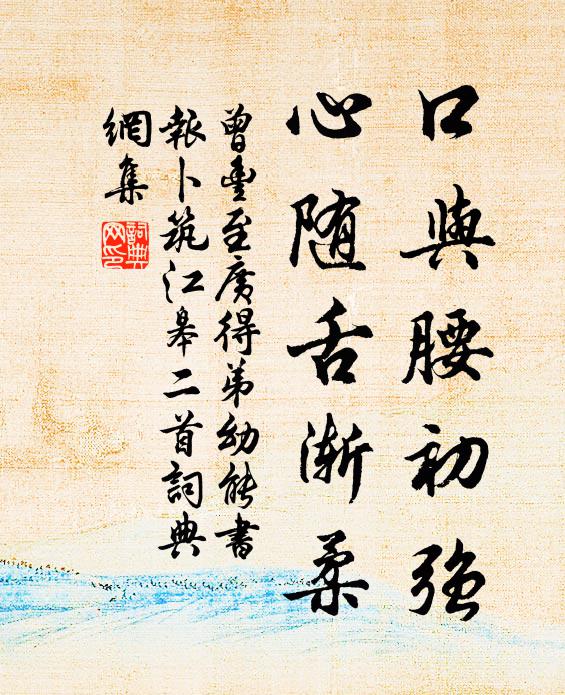 口與腰初強
心随舌渐柔
曾豊至廣得弟幼能書
報卜筑江皋二首詞典
網集
詞典
网印